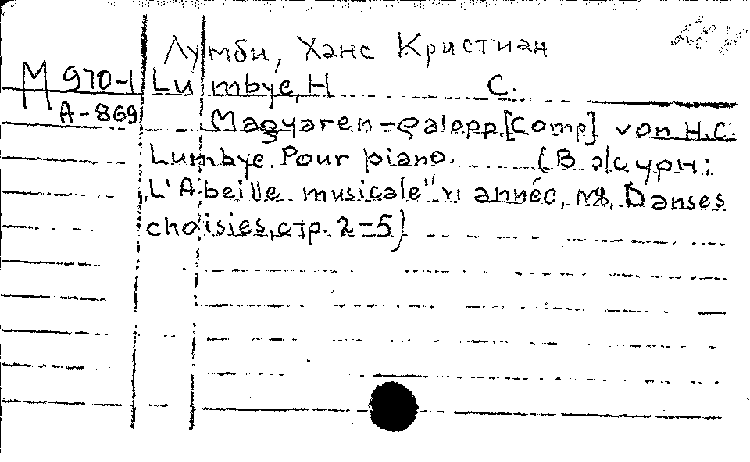 Лумби, Ханс Кристиан
М 970-1 Lumbye, H. C.
А-869 Magyaren-galopp. [Comp] von H.C.
Lumbye. Pour piano. (В журн:
"L'Abeille musicale" VI année, №8, Danses
choisies, стр. 2-5)